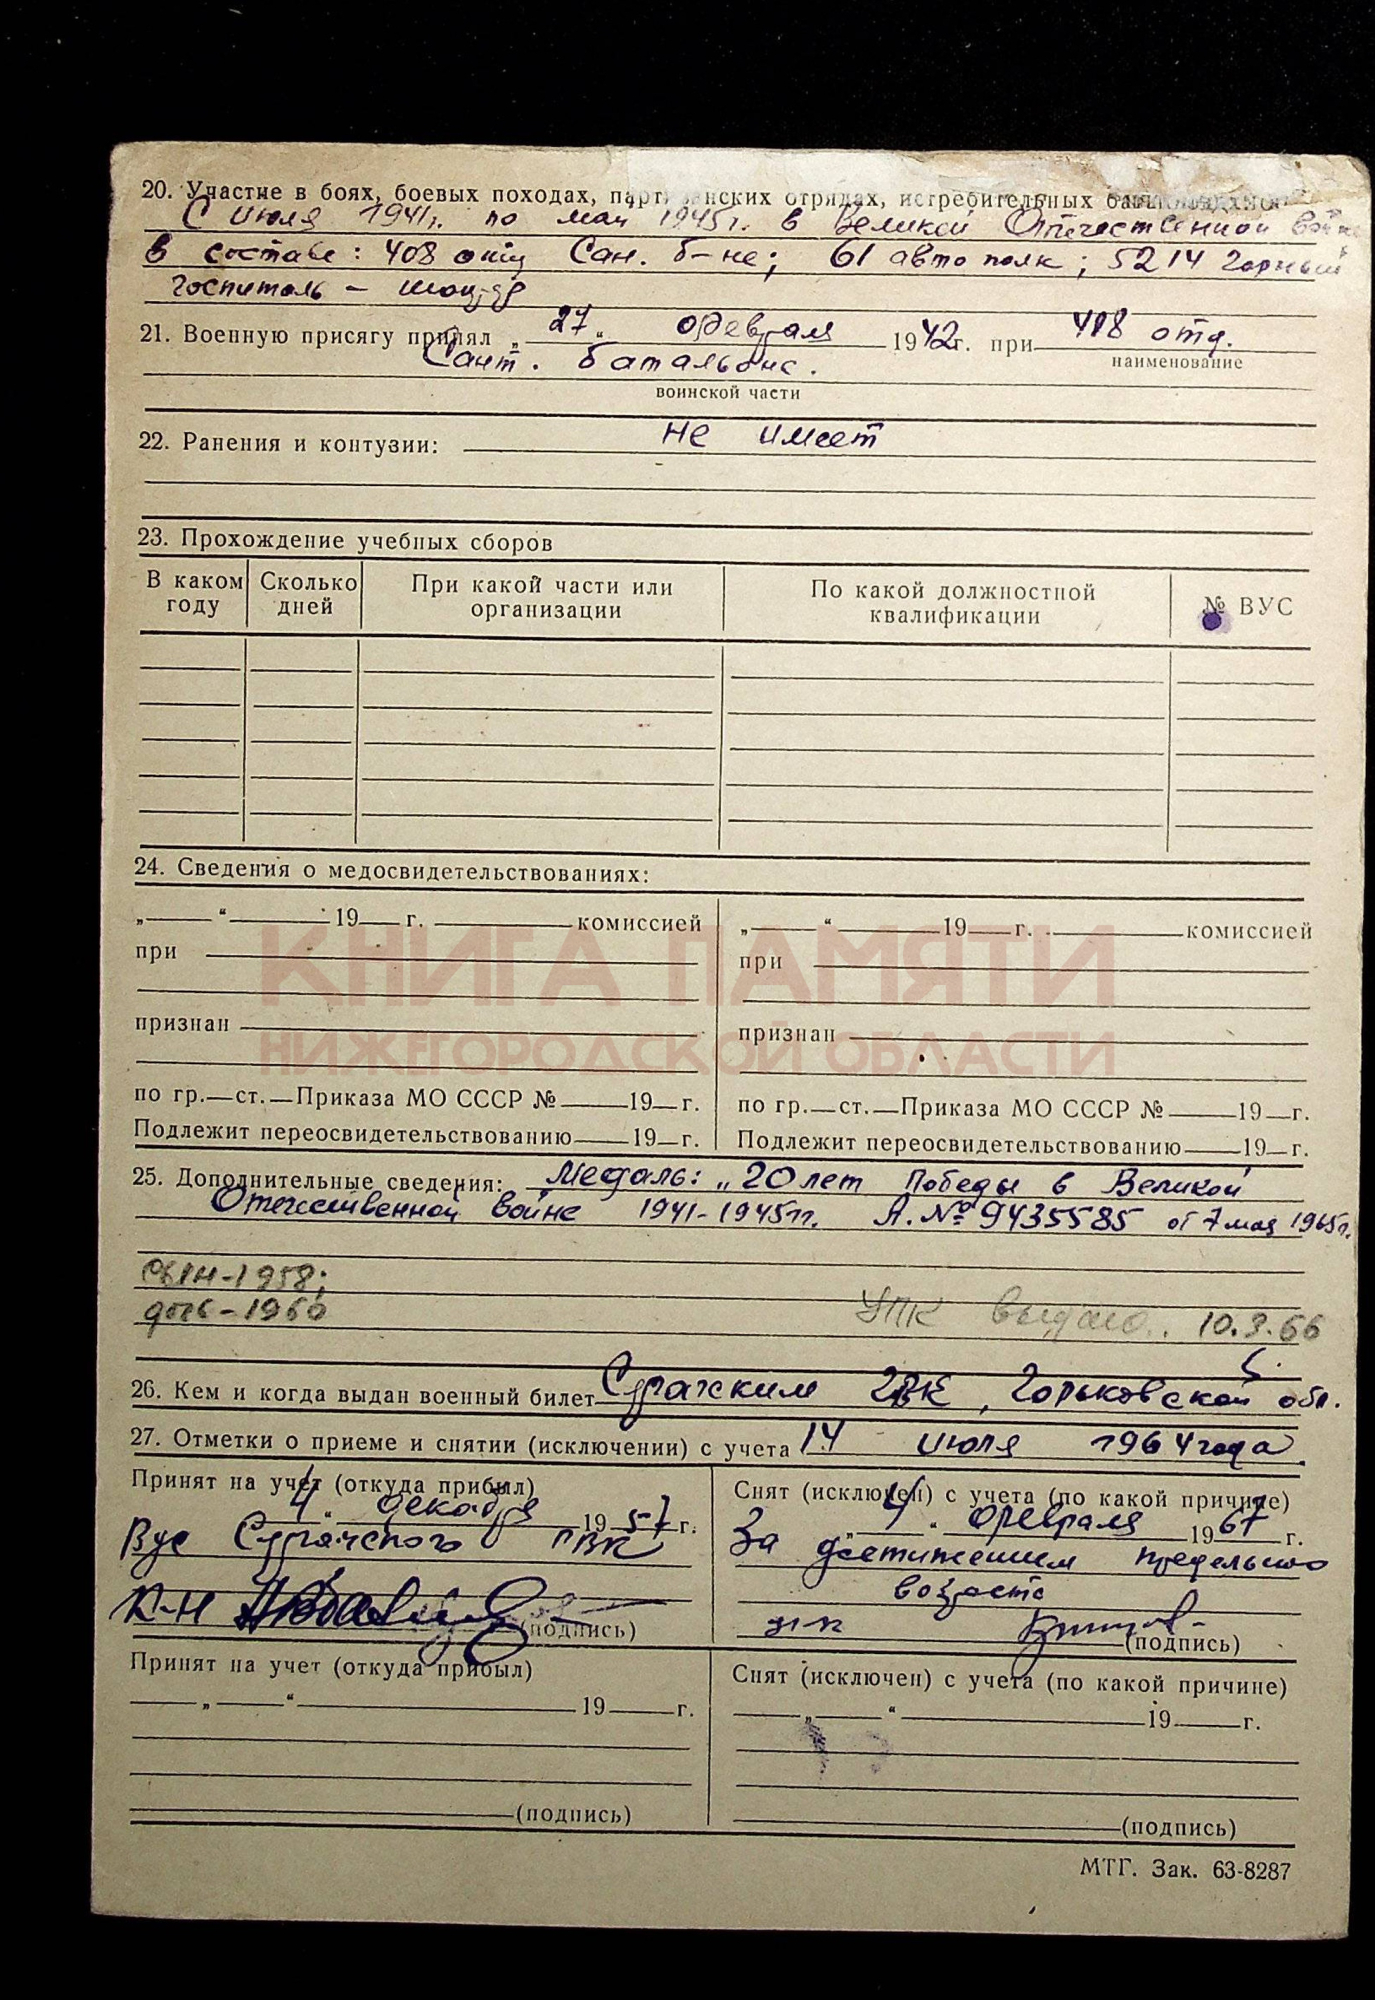 20. Участие в боях, боевых походах, партизанских отрядах, истребительных
С июля 1941г. по май 1945г. в Великой Отечественной войне
в составе: 408 отд Сан. б-не; 61 автополк; 5214 горный
госпиталь – шофер
21. Военную присягу принял „ 27 “ февраля 1942г. при 408 отд.
наименование
Сант. батальоне.
воинской части
22. Ранения и контузии: не имеет
23. Прохождение учебных сборов
В каком году Сколько дней При какой части или организации По какой должностной квалификации № ВУС
24. Сведения о медосвидетельствованиях:
„ “ 19 г. комиссией „ “ 19 г. комиссией
при при
КНИГА ПАМЯТИ
признан признан
НИЖЕГОРОДСКОЙ ОБЛАСТИ
по гр. ст. Приказа МО СССР № 19 г. по гр. ст. Приказа МО СССР № 19 г.
Подлежит переосвидетельствованию 19 г. Подлежит переосвидетельствованию 19 г.
25. Дополнительные сведения: Медаль: „20 лет Победы в Великой
Отечественной войне 1941-1945гг. А.№ 9435585 от 7 мая 1965г.
сын-1958;
дочь-1960 УПК выдано. 10.3.66
26. Кем и когда выдан военный билет Сергачским РВК, Горьковской обл.
27. Отметки о приеме и снятии (исключении) с учета 14 июля 1964 года.
Принят на учет (откуда прибыл) Снят (исключен) с учета (по какой причине)
4 “ декабря 1957г. „ 4 “ февраля 1967 г.
Вус Сергачского РВК За достижением предельного
возраста
к-н (подпись) (подпись)
Принят на учет (откуда прибыл) Снят (исключен) с учета (по какой причине)
„ “ 19 г. „ “ 19 г.
(подпись) (подпись)
МТГ. Зак. 63-8287